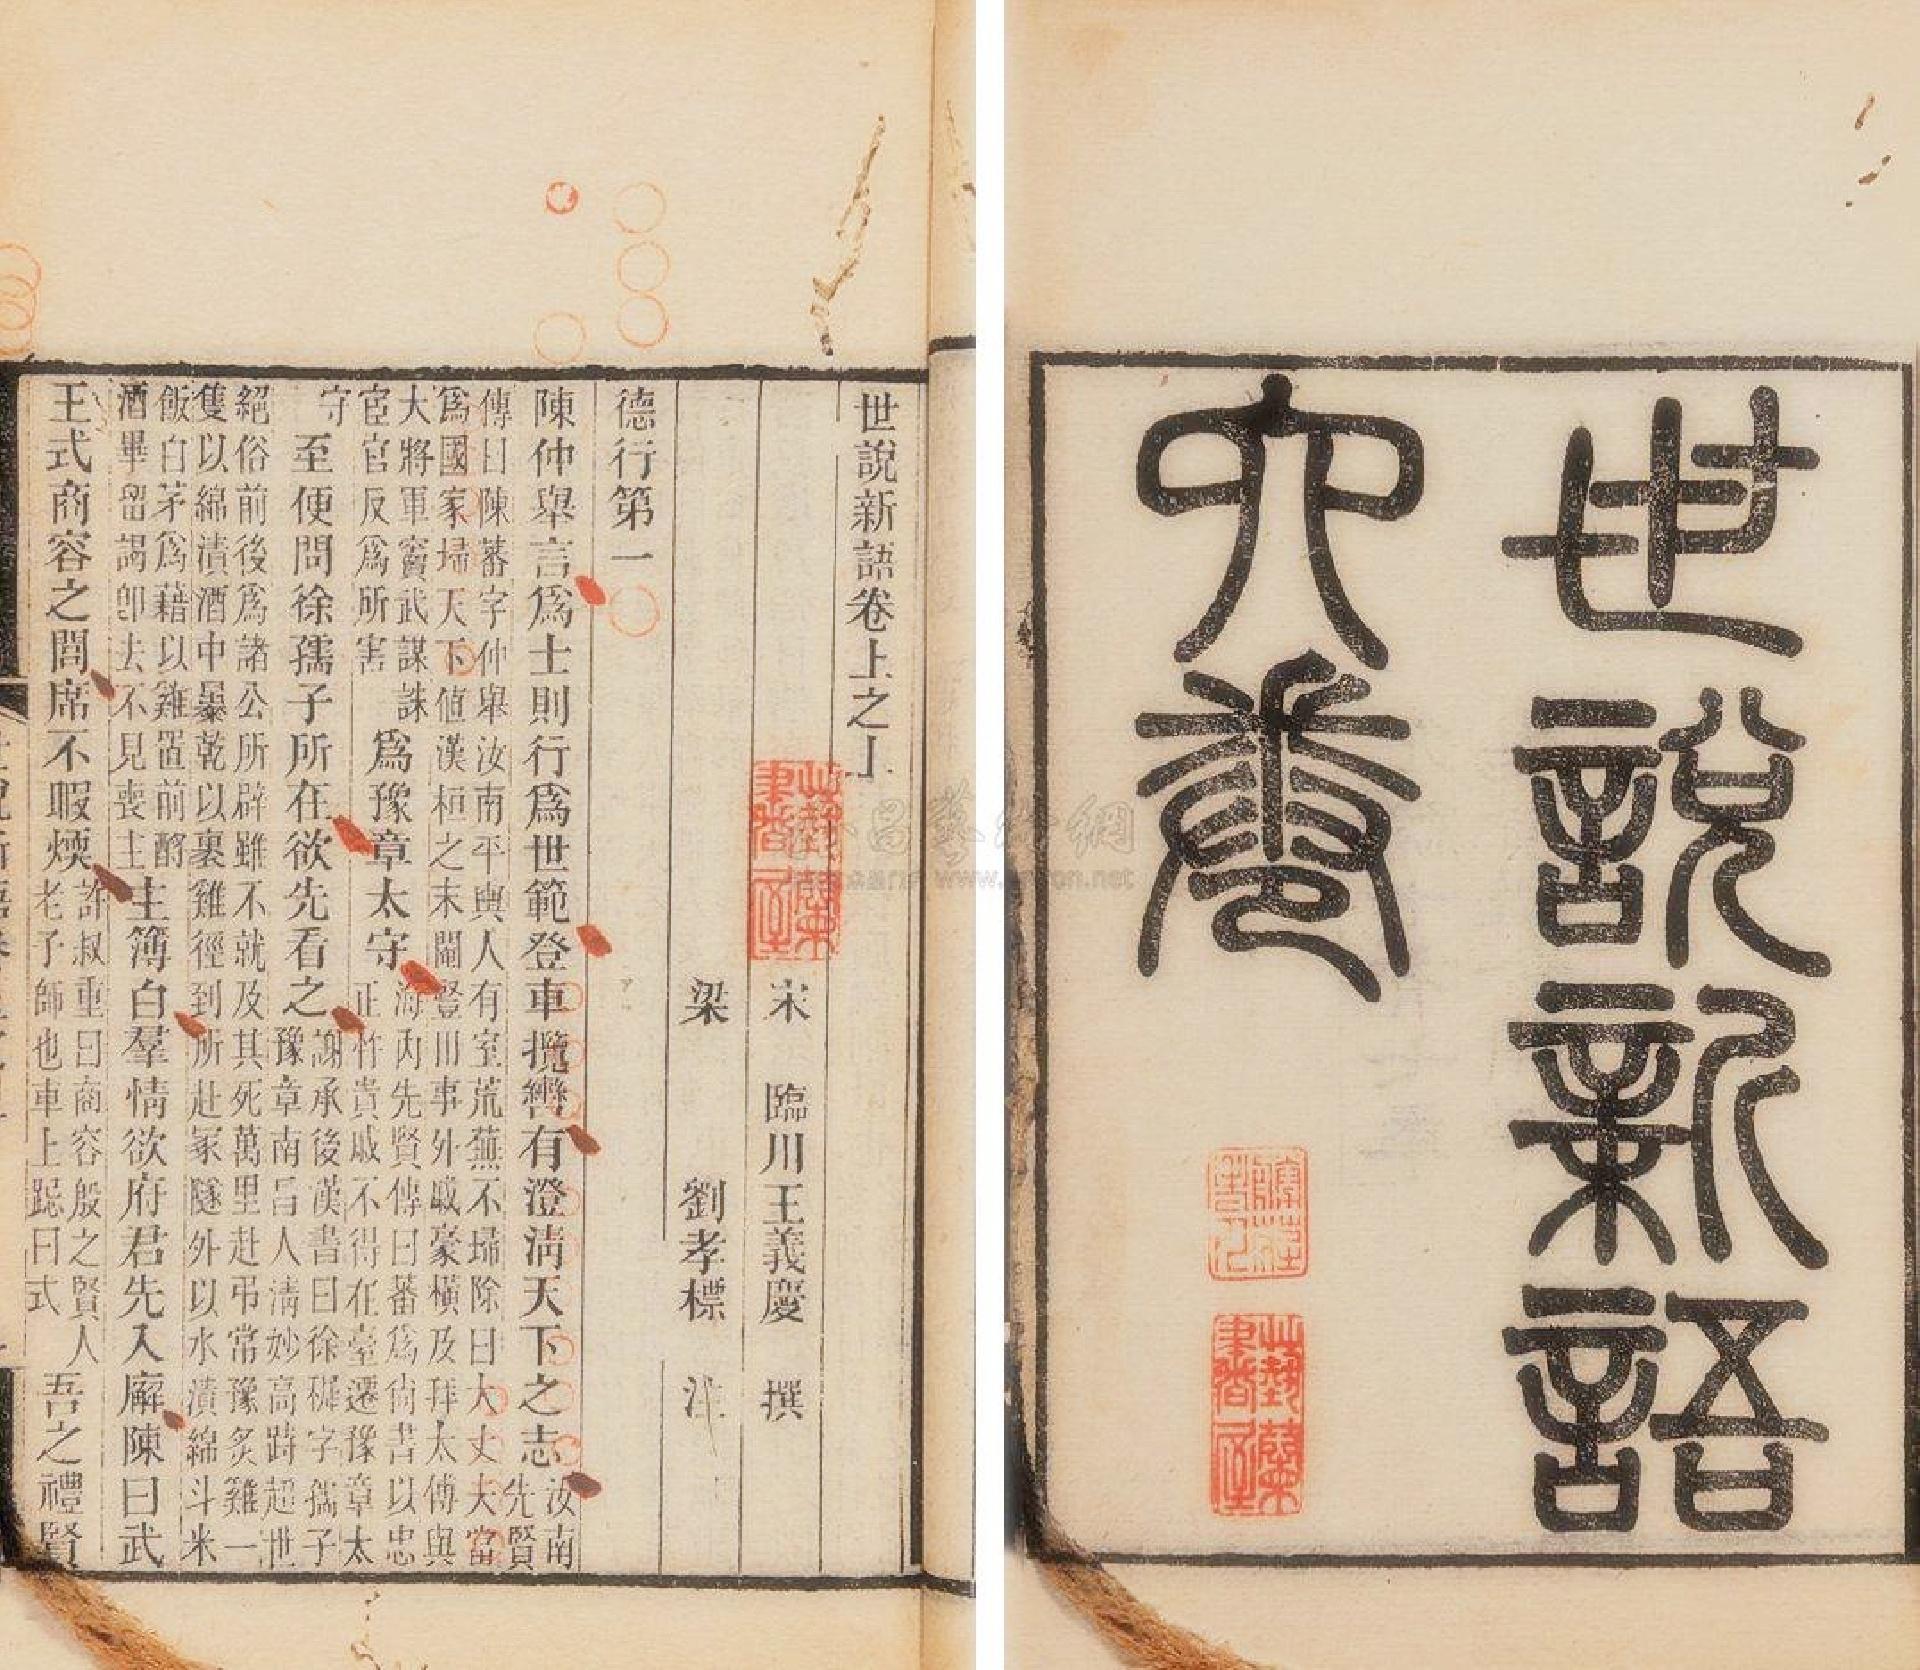 世說新語
六卷
世說新語卷上之上
宋 臨川王義慶 撰
梁 劉孝標 注
德行第一
陳仲舉言爲士則行爲世範登車攬轡有澄淸天下之志
汝南
先賢
傳曰陳蕃字仲舉汝南平輿人有室荒蕪不埽除曰大丈夫當
爲國家埽天下値漢桓之末閹豎用事外戚豪橫及拜太傅與
大將軍竇武謀誅
宦官反爲所害
爲豫章太守
海內先賢傳曰蕃爲尙書以忠
正忤貴戚不得在臺遷豫章太
守
至便問徐孺子所在欲先看之
謝承後漢書曰徐穉字孺子
豫章南昌人淸妙高跱超世
絕俗前後爲諸公所辟雖不就及其死萬里赴弔常豫炙雞一
隻以綿漬酒中暴乾以裹雞徑到所赴冢隧外以水漬綿斗米
飯白茅爲藉以雞置前酹
酒畢留謁卽去不見喪主
主簿白羣情欲府君先入廨陳曰武
王式商容之閭席不暇煖
許叔重曰商容殷之賢人
老子師也車上跽曰式
吾之禮賢